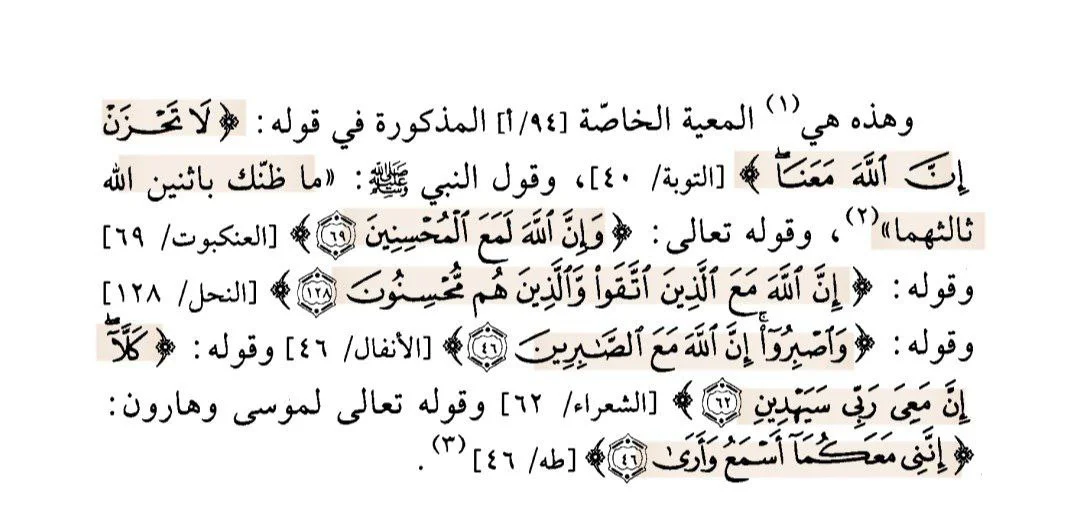 وهذه هي(١) المعية الخاصّة [٩٤/أ] المذكورة في قوله: ﴿لَا تَحْزَنْ
إِنَّ ٱللَّهَ مَعَنَاۖ﴾ [التوبة/ ٤٠]، وقول النبي ﷺ: «ما ظنّك باثنين الله
ثالثهما»(٢)، وقوله تعالى: ﴿وَإِنَّ ٱللَّهَ لَمَعَ ٱلْمُحْسِنِينَ ٦٩﴾ [العنكبوت/ ٦٩]
وقوله: ﴿إِنَّ ٱللَّهَ مَعَ ٱلَّذِينَ ٱتَّقَوا۟ وَّٱلَّذِينَ هُم مُّحْسِنُونَ ١٢٨﴾ [النحل/ ١٢٨]
وقوله: ﴿وَٱصْبِرُوٓا۟ۚ إِنَّ ٱللَّهَ مَعَ ٱلصَّٰبِرِينَ ٤٦﴾ [الأنفال/ ٤٦] وقوله: ﴿كَلَّآۖ
إِنَّ مَعِىَ رَبِّى سَيَهْدِينِ ٦٢﴾ [الشعراء/ ٦٢] وقوله تعالى لموسى وهارون:
﴿إِنَّنِى مَعَكُمَآ أَسْمَعُ وَأَرَىٰ ٤٦﴾ [طه/ ٤٦](٣).